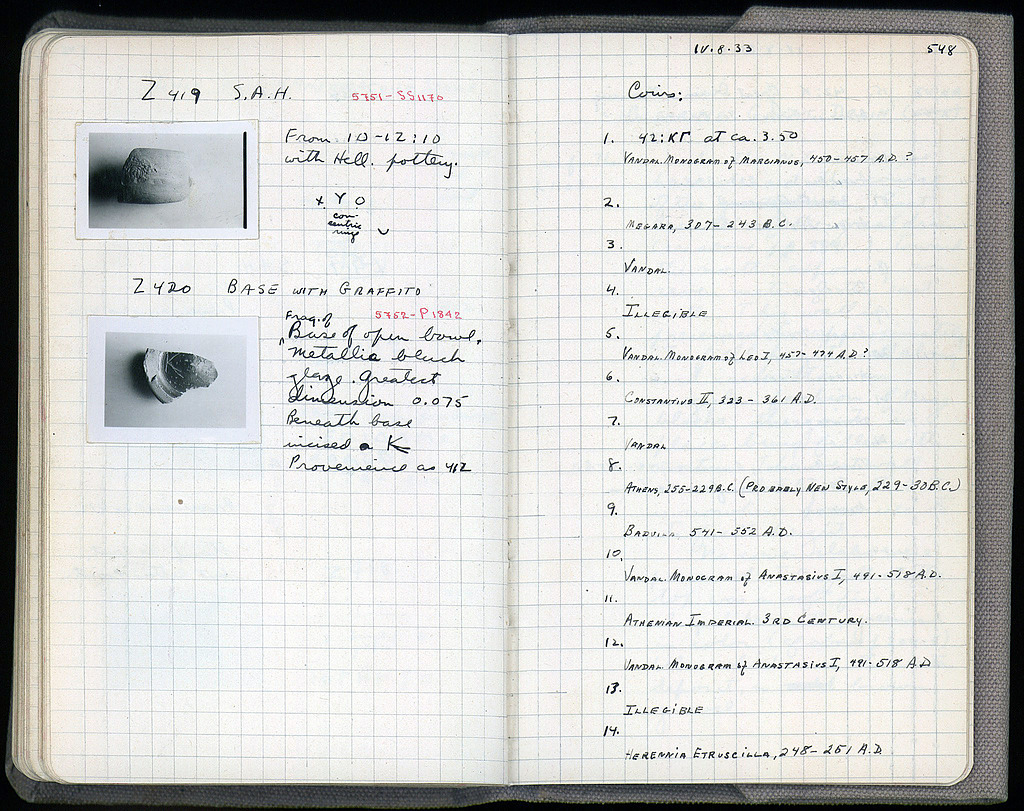 Z 419 S.A.H.
5751-SS1170
From 10-12:10
with Hell. pottery.
x Y O
con-
centric
rings
Z 420 BASE WITH GRAFFITO
5752-P1842
Frag. of
Base of open bowl.
Metallic black
glaze. Greatest
dimension 0.075
Beneath base
incised a K
Provenience as 412
IV.8.33
548
Coins:
1. 42:ΚΓ at ca. 3.50
VANDAL. MONOGRAM of MARCIANUS, 450-457 A.D. ?
2.
MEGARA, 307-243 B.C.
3.
VANDAL.
4.
ILLEGIBLE
5.
VANDAL. MONOGRAM of LEO I, 457-474 A.D.?
6.
CONSTANTIUS II, 323-361 A.D.
7.
VANDAL
8.
ATHENS, 255-229 B.C. (PROBABLY NEW STYLE, 229-30 B.C.)
9.
BADUILA 541-552 A.D.
10.
VANDAL. MONOGRAM of ANASTASIUS I, 491-518 A.D.
11.
ATHENIAN IMPERIAL. 3RD CENTURY.
12.
VANDAL. MONOGRAM of ANASTASIUS I, 491-518 A.D
13.
ILLEGIBLE
14.
HERENNIA ETRUSCILLA, 248-251 A.D